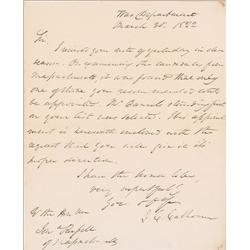 War Department
March 30. 1822
Sir,
I received your note of yesterday in due
season. On examining the
Massachusetts it was found that only
one of those you recommended could
be appointed. Mr. standing first
on your list was selected. His appoint
ment is herewith enclosed with the
request that you will give it its
proper direction.
I have the honor to be,
very respectfully
your
J. C. Calhoun
To the Hon.
John
of